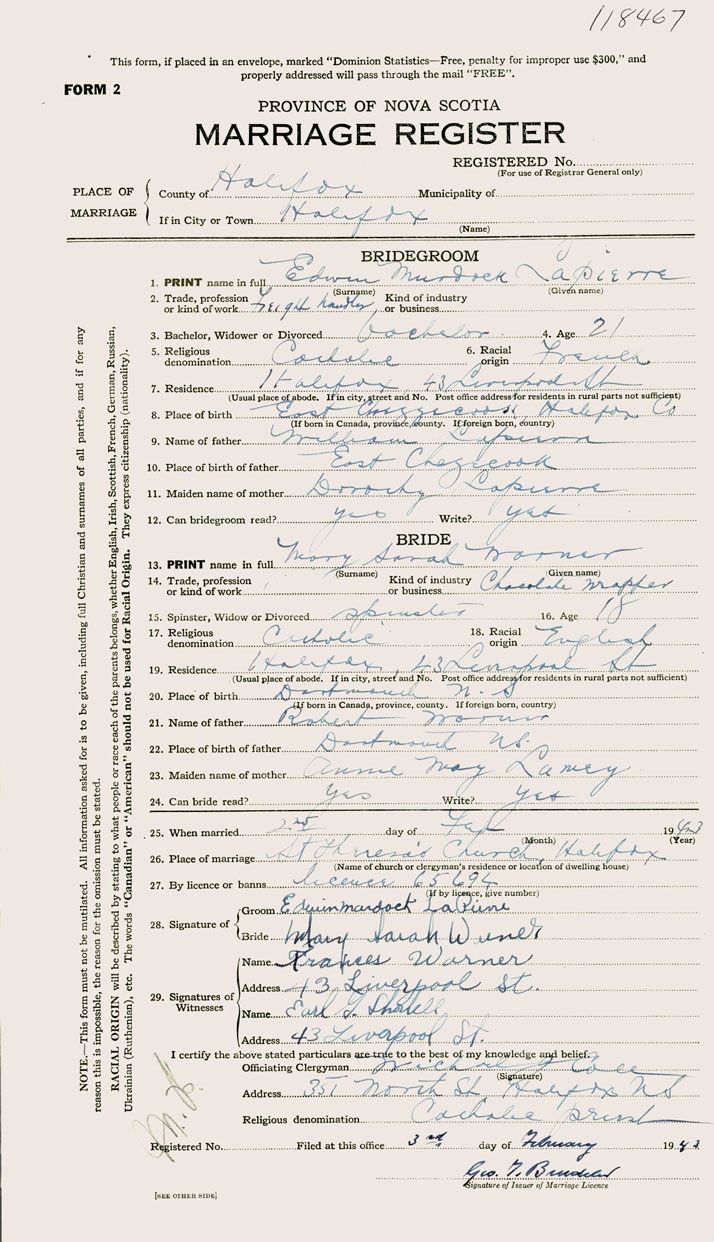 118467
This form, if placed in an envelope, marked "Dominion Statistics—Free, penalty for improper use $300," and
properly addressed will pass through the mail "FREE".
FORM 2
PROVINCE OF NOVA SCOTIA
MARRIAGE REGISTER
REGISTERED No.
(For use of Registrar General only)
PLACE OF MARRIAGE
County of Halifax Municipality of
If in City or Town Halifax
(Name)
BRIDEGROOM
1. PRINT name in full Edwin Murdock LaPierre
(Surname) (Given name)
2. Trade, profession or kind of work Freight handler Kind of industry or business
3. Bachelor, Widower or Divorced bachelor 4. Age 21
5. Religious denomination Catholic 6. Racial origin French
7. Residence Halifax, 43 Liverpool St
(Usual place of abode. If in city, street and No. Post office address for residents in rural parts not sufficient)
8. Place of birth East Chezzcook, Halifax Co
(If born in Canada, province, county. If foreign born, country)
9. Name of father William Lapierre
10. Place of birth of father East Chezicook
11. Maiden name of mother Dorothy Lapierre
12. Can bridegroom read? yes Write? yes
BRIDE
13. PRINT name in full Mary Sarah Warner
(Surname) (Given name)
14. Trade, profession or kind of work Kind of industry or business Chocolate wrapper
15. Spinster, Widow or Divorced spinster 16. Age 18
17. Religious denomination Catholic 18. Racial origin English
19. Residence Halifax, 43 Liverpool St
(Usual place of abode. If in city, street and No. Post office address for residents in rural parts not sufficient)
20. Place of birth Dartmouth N.S
(If born in Canada, province, county. If foreign born, country)
21. Name of father Robert Warner
22. Place of birth of father Dartmouth NS.
23. Maiden name of mother Annie May Lamey
24. Can bride read? Yes Write? Yes
25. When married 2nd day of Feb 1943
(Month) (Year)
26. Place of marriage St Theresa's Church, Halifax
(Name of church or clergyman's residence or location of dwelling house)
27. By licence or banns licence 65694
(If by licence, give number)
28. Signature of
Groom Edwin murdock LaPierre
Bride Mary Sarah Warner
29. Signatures of Witnesses
Name Frances Warner
Address 43 Liverpool St.
Name Earl
Address 43 Liverpool St.
I certify the above stated particulars are true to the best of my knowledge and belief.
Officiating Clergyman Michael
(Signature)
Address 351 North St, Halifax NS
Religious denomination Catholic priest
Registered No. Filed at this office 3rd day of February 1943
Geo.
Signature of Issuer of Marriage Licence
[SEE OTHER SIDE]
NOTE.—This form must not be mutilated. All information asked for is to be given, including full Christian and surnames of all parties, and if for any
reason this is impossible, the reason for the omission must be stated.
RACIAL ORIGIN will be described by stating to what people or race each of the parents belongs, whether English, Irish, Scottish, French, German, Russian,
Ukrainian (Ruthenian), etc. The words "Canadian" or "American" should not be used for Racial Origin. They express citizenship (nationality).